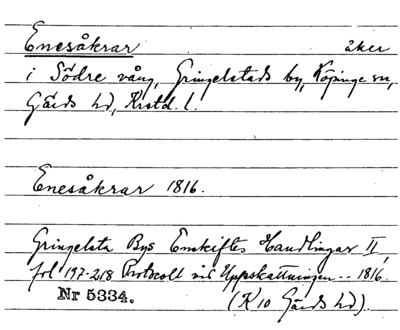 Enesåkrar åker
i Södre vång, Gringelstads by, Köpinge sn,
Gärds hd, Krstd. l.
Enesåkrar 1816.
Gringelsta Bys Enskiftes Handlingar II,
fol 197-218 Protocoll vid Uppskattningen -- 1816.
Nr 5334. (K 10 Gärds hd).